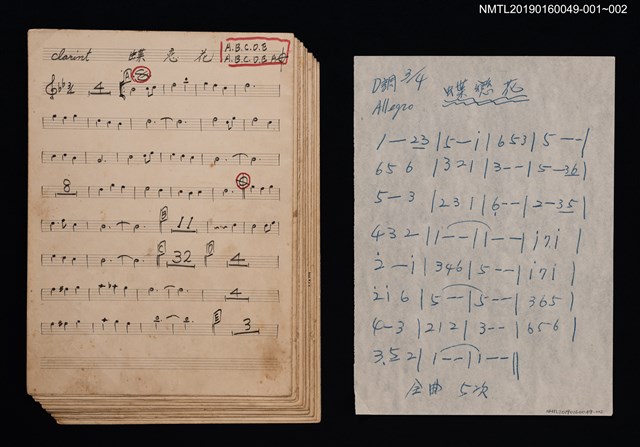 NMTL20190160049-001~002
clarint 蝶恋花
A.B.C.D.E
A.B.C.D.E
A
4
8
B 11
C 32 D 4
4
E 3
D調 3/4 蝶戀花
Allegro
1 — 23 | 5 — i | 6 5 3 | 5 — — |
6 5 6 | 3 2 1 | 3 — — | 5 — 36 |
5 — 3 | 2 3 1 | 6̣ — — | 2 — 35 |
4 3 2 | 1 — — | 1 — — | i 7 i |
2̇ — i | 3 4 6 | 5 — — | i 7 i |
2̇ i 6 | 5 — — | 5 — — | 3 6 5 |
4 — 3 | 2 1 2 | 3 — — | 6 5 6 |
3. 5 2 | 1 — — | 1 — — ||
全曲 5次
NMTL20190160049-002